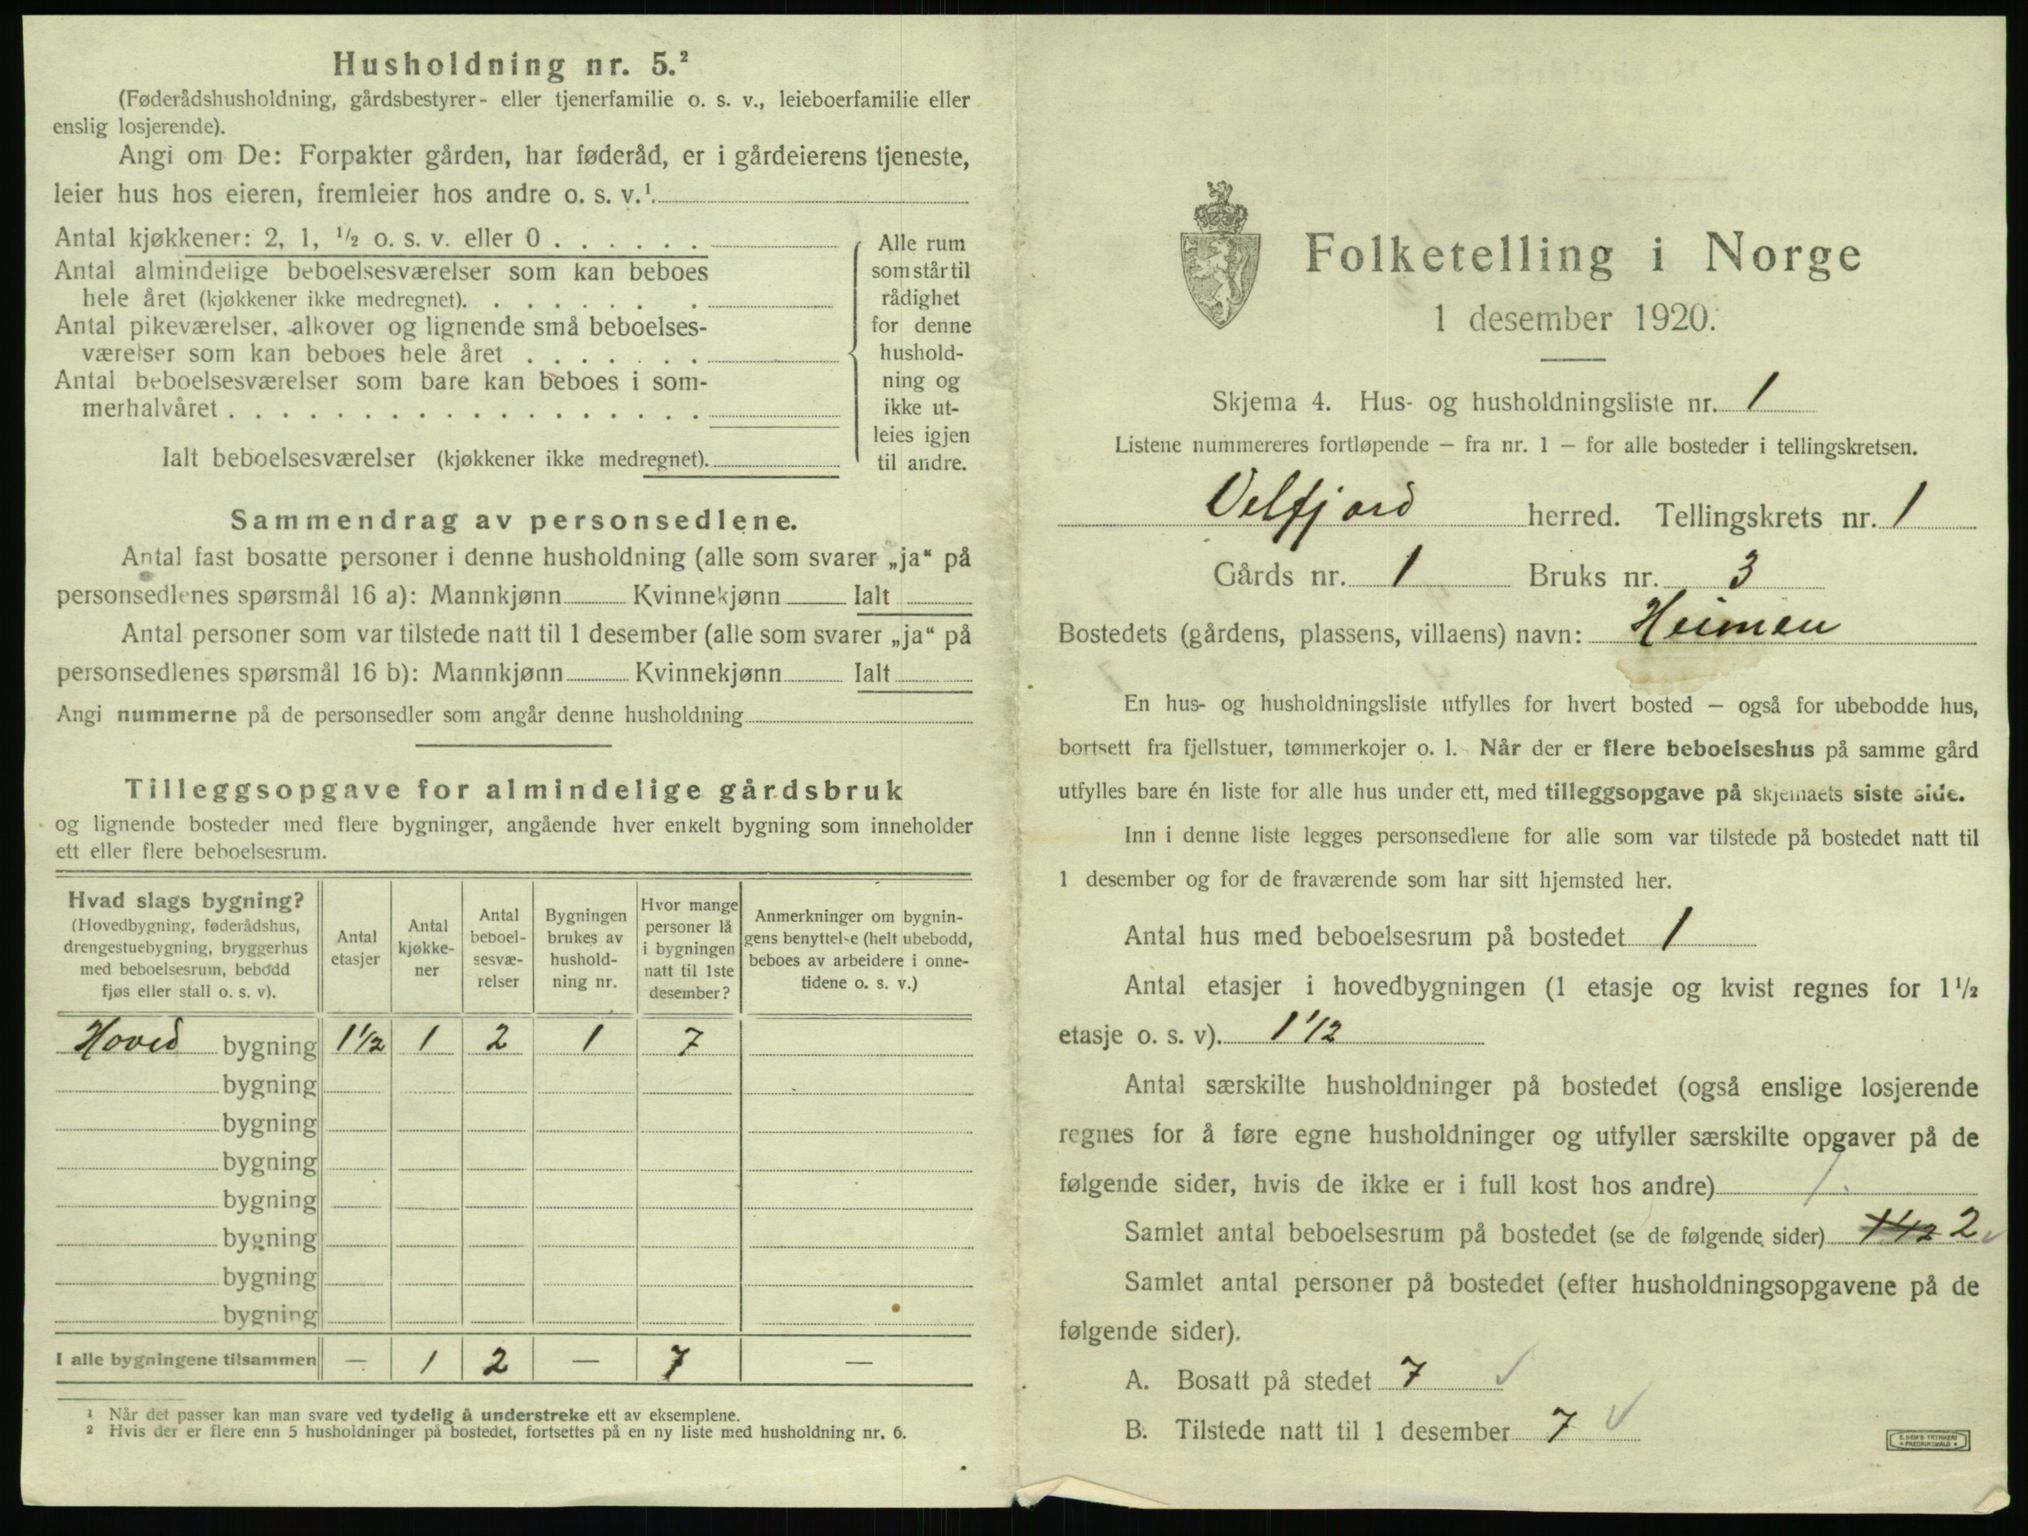 Husholdning nr. 5.²
(Føderådshusholdning, gårdsbestyrer- eller tjenerfamilie o. s. v., leieboerfamilie eller
enslig losjerende).
Angi om De: Forpakter gården, har føderåd, er i gårdeierens tjeneste,
leier hus hos eieren, fremleier hos andre o. s. v.¹
Antal kjøkkener: 2, 1, ½ o. s. v. eller 0
Antal almindelige beboelsesværelser som kan beboes
hele året (kjøkkener ikke medregnet).
Antal pikeværelser, alkover og lignende små beboelses-
værelser som kan beboes hele året
Antal beboelsesværelser som bare kan beboes i som-
merhalvåret
Ialt beboelsesværelser (kjøkkener ikke medregnet).
Alle rum
som står til
rådighet
for denne
hushold-
ning og
ikke ut-
leies igjen
til andre.
Sammendrag av personsedlene.
Antal fast bosatte personer i denne husholdning (alle som svarer „ja“ på
personsedlenes spørsmål 16 a): Mannkjønn Kvinnekjønn Ialt
Antal personer som var tilstede natt til 1 desember (alle som svarer „ja“ på
personsedlenes spørsmål 16 b): Mannkjønn Kvinnekjønn Ialt
Angi nummerne på de personsedler som angår denne husholdning
Tilleggsopgave for almindelige gårdsbruk
og lignende bosteder med flere bygninger, angående hver enkelt bygning som inneholder
ett eller flere beboelsesrum.
Hvad slags bygning?
(Hovedbygning, føderådshus,
drengestuebygning, bryggerhus
med beboelsesrum, bebodd
fjøs eller stall o. s. v).
Antal
etasjer
Antal
kjøkke-
ner
Antal
beboel-
sesvæ-
relser
Bygningen
brukes av
hushold-
ning nr.
Hvor mange
personer lå
i bygningen
natt til 1ste
desember?
Anmerkninger om bygnin-
gens benyttelse (helt ubebodd,
beboes av arbeidere i onne-
tidene o. s. v.)
Hoved bygning 1½ 1 2 1 7
bygning
bygning
bygning
bygning
bygning
bygning
bygning
I alle bygningene tilsammen — 1 2 — 7 —
¹ Når det passer kan man svare ved tydelig å understreke ett av eksemplene.
² Hvis der er flere enn 5 husholdninger på bostedet, fortsettes på en ny liste med husholdning nr. 6.
Folketelling i Norge
1 desember 1920.
Skjema 4. Hus- og husholdningsliste nr. 1
Listene nummereres fortløpende — fra nr. 1 — for alle bosteder i tellingskretsen.
Velfjord herred. Tellingskrets nr. 1
Gårds nr. 1 Bruks nr. 3
Bostedets (gårdens, plassens, villaens) navn: Heimen
En hus- og husholdningsliste utfylles for hvert bosted — også for ubebodde hus,
bortsett fra fjellstuer, tømmerkojer o. l. Når der er flere beboelseshus på samme gård
utfylles bare én liste for alle hus under ett, med tilleggsopgave på skjemaets siste side.
Inn i denne liste legges personsedlene for alle som var tilstede på bostedet natt til
1 desember og for de fraværende som har sitt hjemsted her.
Antal hus med beboelsesrum på bostedet 1
Antal etasjer i hovedbygningen (1 etasje og kvist regnes for 1½
etasje o. s. v). 1½
Antal særskilte husholdninger på bostedet (også enslige losjerende
regnes for å føre egne husholdninger og utfyller særskilte opgaver på de
følgende sider, hvis de ikke er i full kost hos andre) 1.
Samlet antal beboelsesrum på bostedet (se de følgende sider) 1½ 2
Samlet antal personer på bostedet (efter husholdningsopgavene på de
følgende sider).
A. Bosatt på stedet 7
B. Tilstede natt til 1 desember 7